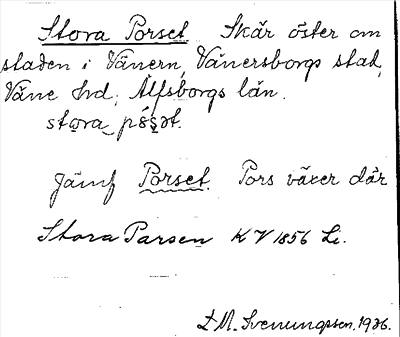 Stora Porset Skär öster om
staden i Vänern, Vänersborgs stad,
Väne hd, Älfsborgs län.
Jämf Porset. Pors växer där
Stora Parsen KV 1856 Li.
M. Svenungsson, 1926.